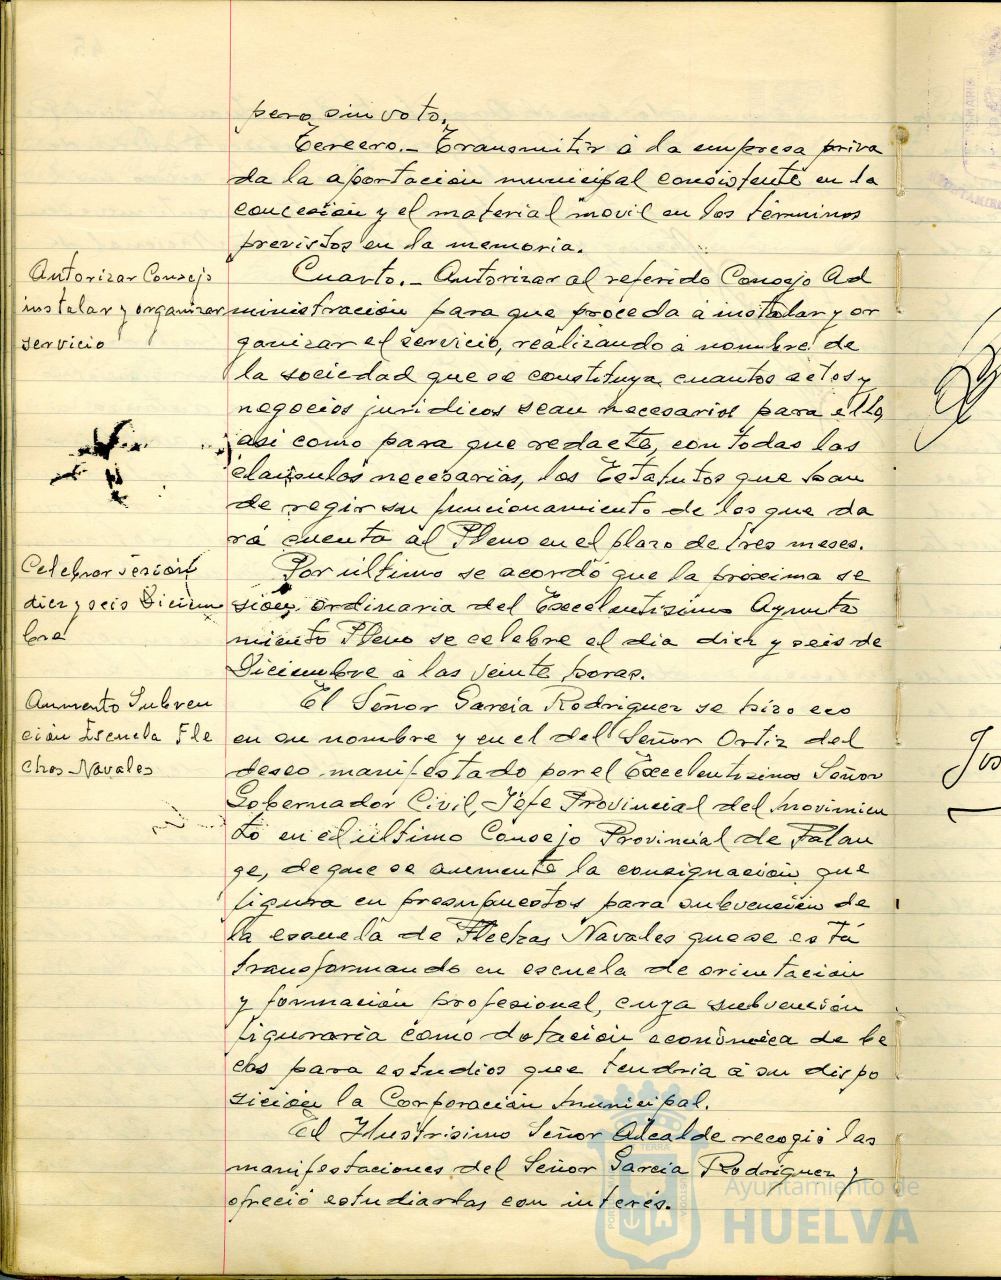 pero sin voto.
Tercero.- Transmitir á la empresa priva
da la aportación municipal consistente en la
concesión y el material móvil en los términos
previstos en la memoria.
Autorizar Consejo
instalar y organizar
servicio
Cuarto.- Autorizar al referido Consejo Ad
ministración para que proceda á instalar y or
ganizar el servicio, realizando á nombre de
la sociedad que se constituya cuantos actos y
negocios jurídicos sean necesarios para ello,
así como para que redacte, con todas las
claúsulas necesarias, los Estatutos que han
de regir su funcionamiento de los que da
rá cuenta al Pleno en el plazo de tres meses.
Celebrar sesión
diez y seis Diciem
bre
Por último se acordó que la próxima se
sión ordinaria del Excelentísimo Ayunta
miento Pleno se celebre el día diez y seis de
Diciembre á las veinte horas.
Aumento Subven
ción Escuela Fle
chas Navales
El Señor García Rodríguez se hizo eco
en su nombre y en el del Señor Ortiz del
deseo manifestado por el Excelentísimo Señor
Gobernador Civil, Jefe Provincial del Movimien
to en el último Consejo Provincial de Falan
ge, de que se aumente la consignación que
figura en presupuestos para subvención de
la escuela de Flechas Navales que se está
transformando en escuela de orientación
y formación profesional, cuya subvención
figuraría como dotación económica de be
cas para estudios que tendría á su dispo
sición la Corporación Municipal.
El Ilustrísimo Señor Alcalde recogió las
manifestaciones del Señor García Rodríguez y
ofreció estudiarlas con interés.
Jos
Ayuntamiento de
HUELVA